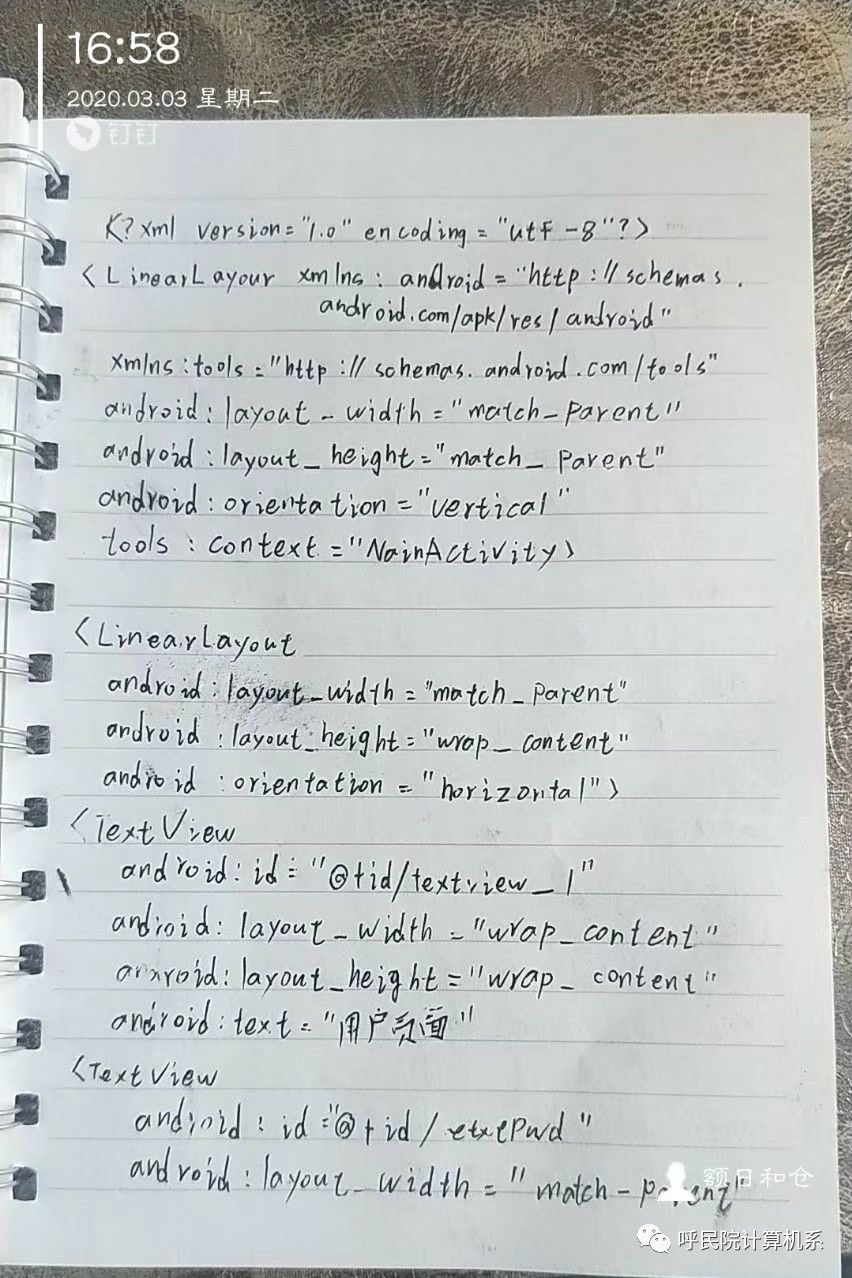 16:58
2020.03.03 星期二
钉钉
<?xml version="1.0" encoding="utf-8"?>
<LinearLayour xmlns:android="http://schemas.
android.com/apk/res/android"
xmlns:tools="http://schemas.android.com/tools"
android:layout_width="match_parent"
android:layout_height="match_parent"
android:orientation="vertical"
tools:context="NainActivity>
<LinearLayout
android:layout_width="match_parent"
android:layout_height="wrap_content"
android:orientation="horizontal">
<TextView
android:id="@+id/textview_1"
android:layout_width="wrap_content"
anxroid:layout_height="wrap_content"
android:text="用户页面"
<TextView
android:id="@+id/etxtPwd"
android:layout_width="match-parent"
额日和仓
呼民院计算机系